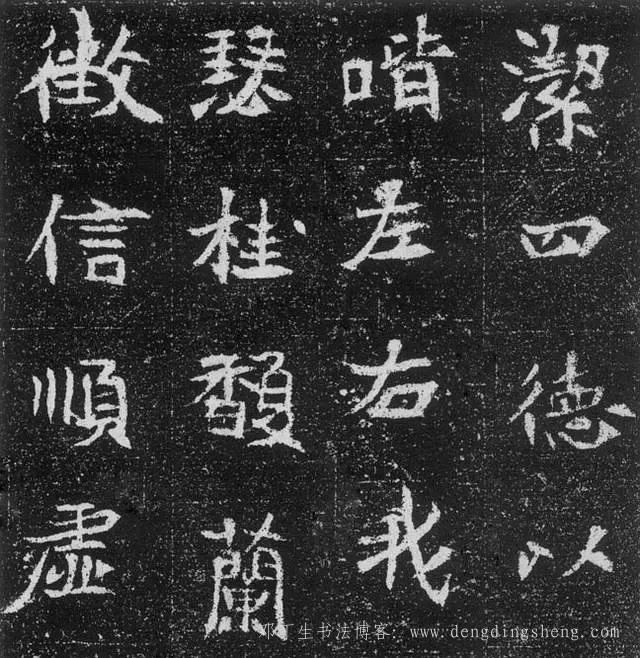 潔四德以
喈左右我
瑟桂馥蘭
徽信順虛
邓丁生书法博客: www.dengdingsheng.com